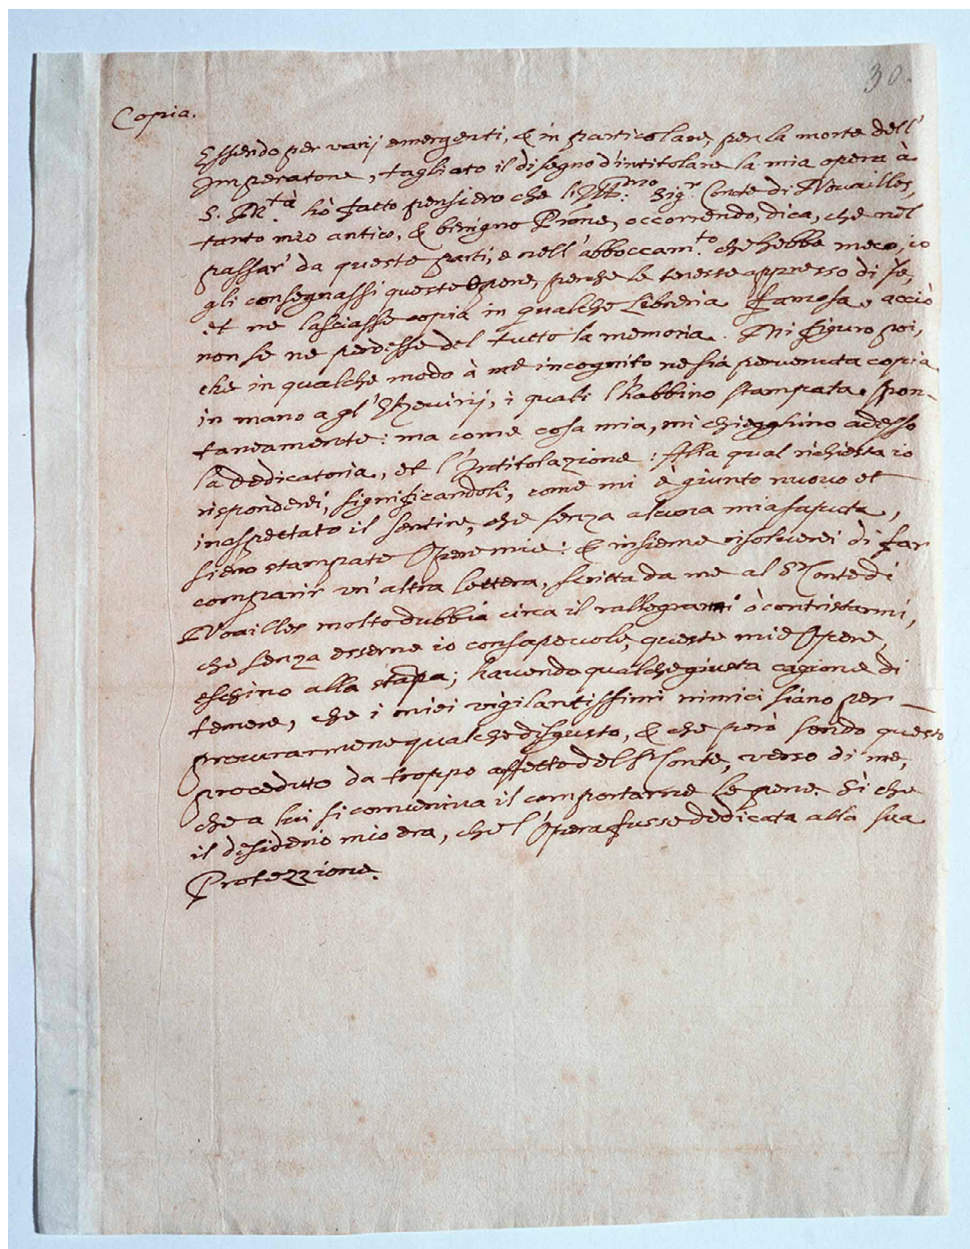 30.
Copia.
Essendo per varij emergenti, & in particolare, per la morte dell'
Imperatore, tagliato il disegno d'intitolare la mia opera à
S. M.tà hò fatto pensiero che l'Ill.mo Sig.r Conte di Novailles,
tanto mio antico, & benigno Prone, occorrendo, dica, che nel
passar' da queste parti, e nell' abboccam.to che hebbe meco, io
gli consegnassi queste Opere, perche le tenesse appresso di se,
et ne lasciasse copia in qualche Libreria famosa, acciò
non se ne perdesse del tutto la memoria. Mi figuro poi,
che in qualche modo à me incognito ne sia pervenuta copia
in mano a gl' Elzevirij, i quali l'habbino stampata spon-
taneamente: ma come cosa mia, mi chiegghino adesso
la Dedicatoria, et l'Intitolazione: Alla qual richiesta io
risponderei, significandoli, come mi è giunto nuovo et
inaspettato il sentire, che senza alcuna mia saputa,
sieno stampate Opere mie: & insieme risolverei di far
comparir un' altra lettera, scritta da me al S.r Conte di
Noailles molto dubbia circa il rallegrarmi ò contristarmi,
che senza esserne io consapevole, queste mie Opere,
eschino alla stāpa; havendo qualche giusta cagione di
temere, che i miei vigilantissimi nimici siano per
procurarmene qualche disgusto, & che però sendo questo
proceduto da troppo affetto del S.r Conte, verso di me,
che a lui si conveniva il comportarne le pene. Si che
il desiderio mio era, che l'Opera fusse dedicata alla sua
Protezzione.